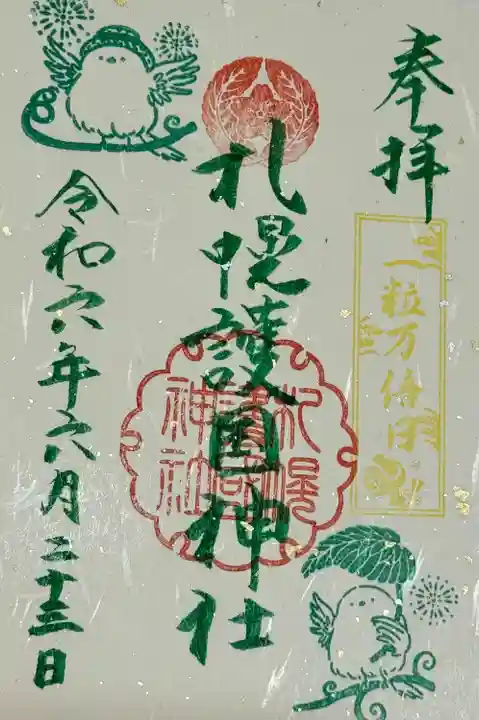 奉拝
一粒万倍日
札幌護国神社
札幌
護国
神社
令和六年六月二十三日